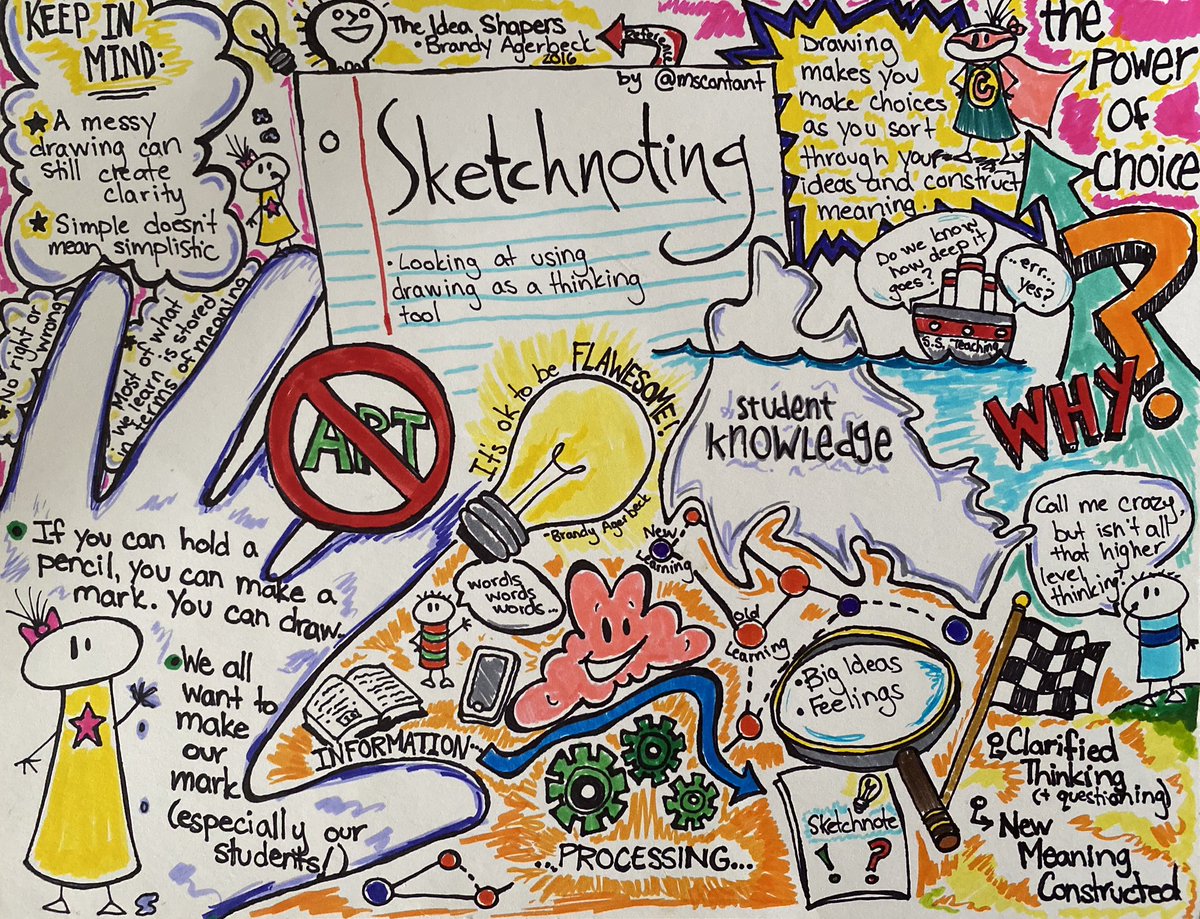 KEEP IN
MIND:
A messy
drawing can
still create
clarity
Simple doesn't
mean simplistic
No right or
wrong
Most of what
we learn is stored
in terms of meaning
The Idea Shapers
• Brandy Agerbeck
2016
Reference
by @mscontant
Sketchnoting
• Looking at using
drawing as a thinking
tool
Drawing
makes you
make choices
as you sort
through your
ideas and construct
meaning.
C
the
power
of
choice
Do we know
how deep it
goes?
..err...
yes?
S.S. Teaching
WHY?
student
knowledge
ART
It's ok to be FLAWESOME!
- Brandy Agerbeck
• If you can hold a
pencil, you can make a
mark. You can draw.
• We all
want to
make
our
mark
(especially our
students!)
words
words
words...
INFORMATION...
New
Learning
Old
Learning
...PROCESSING...
• Big Ideas
• Feelings
Sketchnote
! ?
Call me crazy,
but isn't all
that higher
level
thinking?
Clarified
Thinking
(+ questioning)
New
Meaning
Constructed